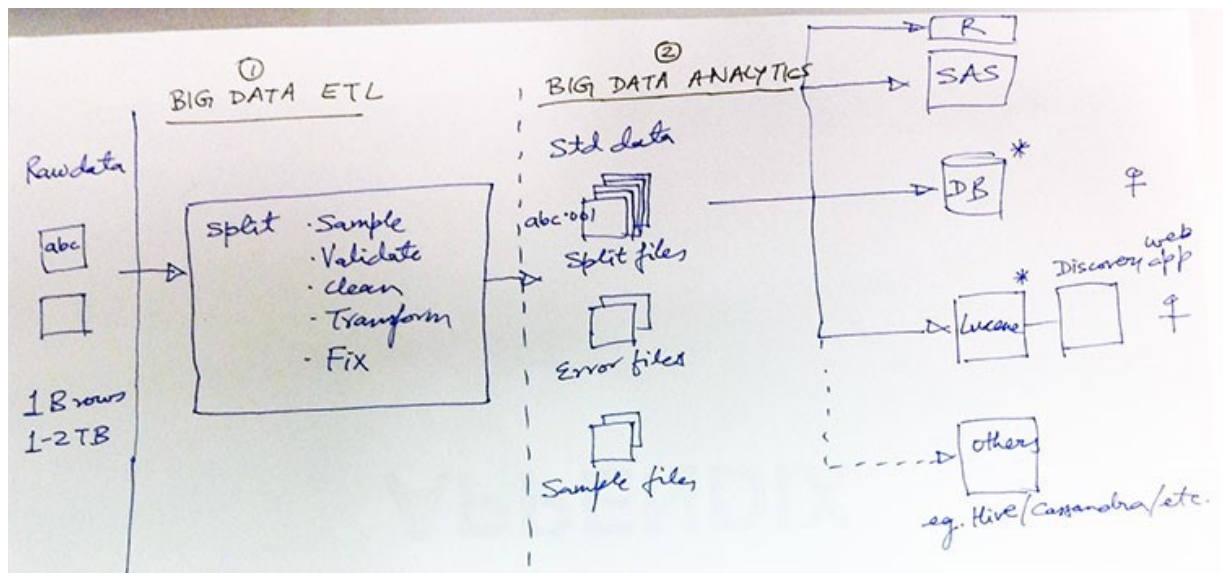 ①
BIG DATA ETL
Raw data
abc
1 B rows
1-2 TB
split
· Sample
· Validate
· clean
· Transform
· Fix
②
BIG DATA ANALYTICS
Std data
abc.001
Split files
Error files
Sample files
R
SAS
DB *
*
Lucene
Discovery web
app
others
eg. Hive/Cassandra/etc.
APPENDIX